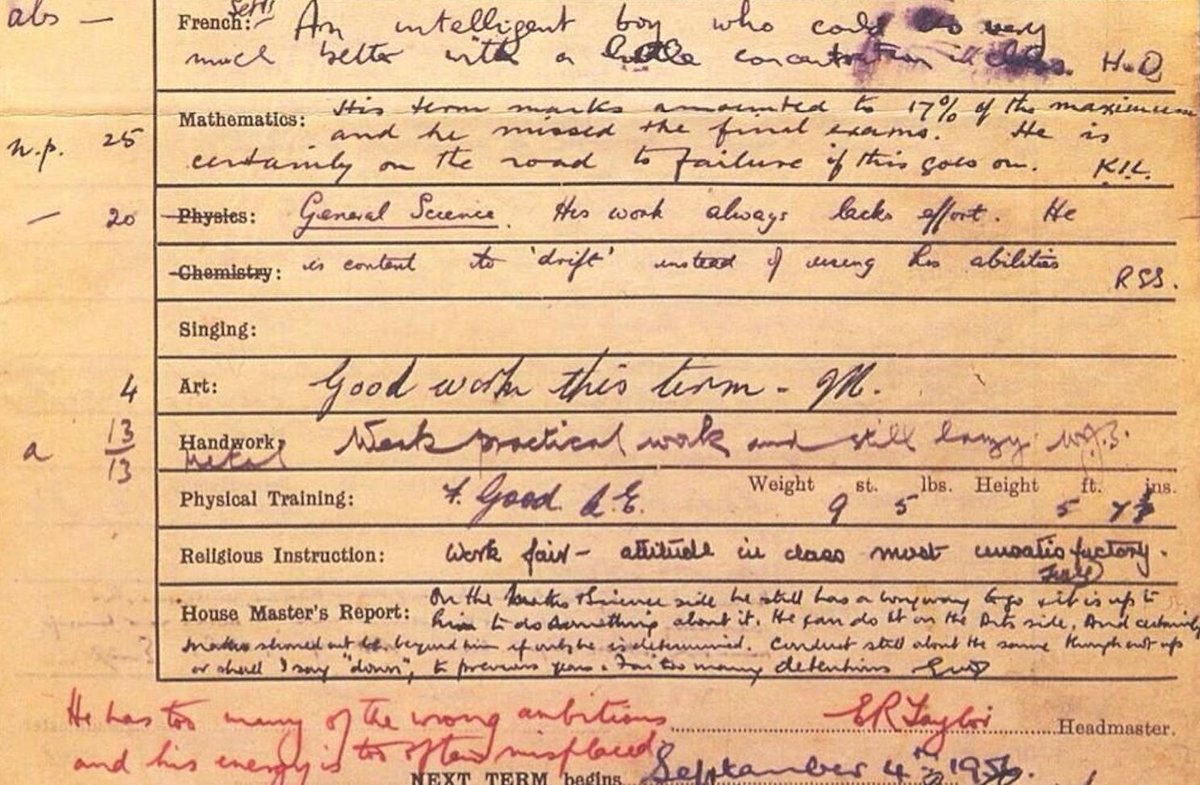 abs —
French: An intelligent boy who could do very
much better with a little concentration in class. H.D.
Mathematics: His term marks amounted to 17% of the maximum
n.p. 25 and he missed the final exams. He is
certainly on the road to failure if this goes on.
— 20 Physics: General Science. His work always lacks effort. He
Chemistry: is content to 'drift' instead of using his abilities
RSS.
Singing:
4 Art: Good work this term - M.
a 13/13 Handwork, Weak practical work and still lazy
Metal
Physical Training: F. Good. A.E. Weight 9 st. 5 lbs. Height 5 ft. 7 ins.
Religious Instruction: Work fair - attitude in class most unsatisfactory.
House Master's Report: On the Maths & Science side he still has a long way to go & it is up to
him to do something about it. He can do it on the Arts side, and certainly
Maths should not be beyond him if only he is determined. Conduct still about the same though not up
or shall I say "down", to previous years. Far too many detentions
He has too many of the wrong ambitions E R Taylor Headmaster.
and his energy is too often misplaced
NEXT TERM begins September 4th 1956.